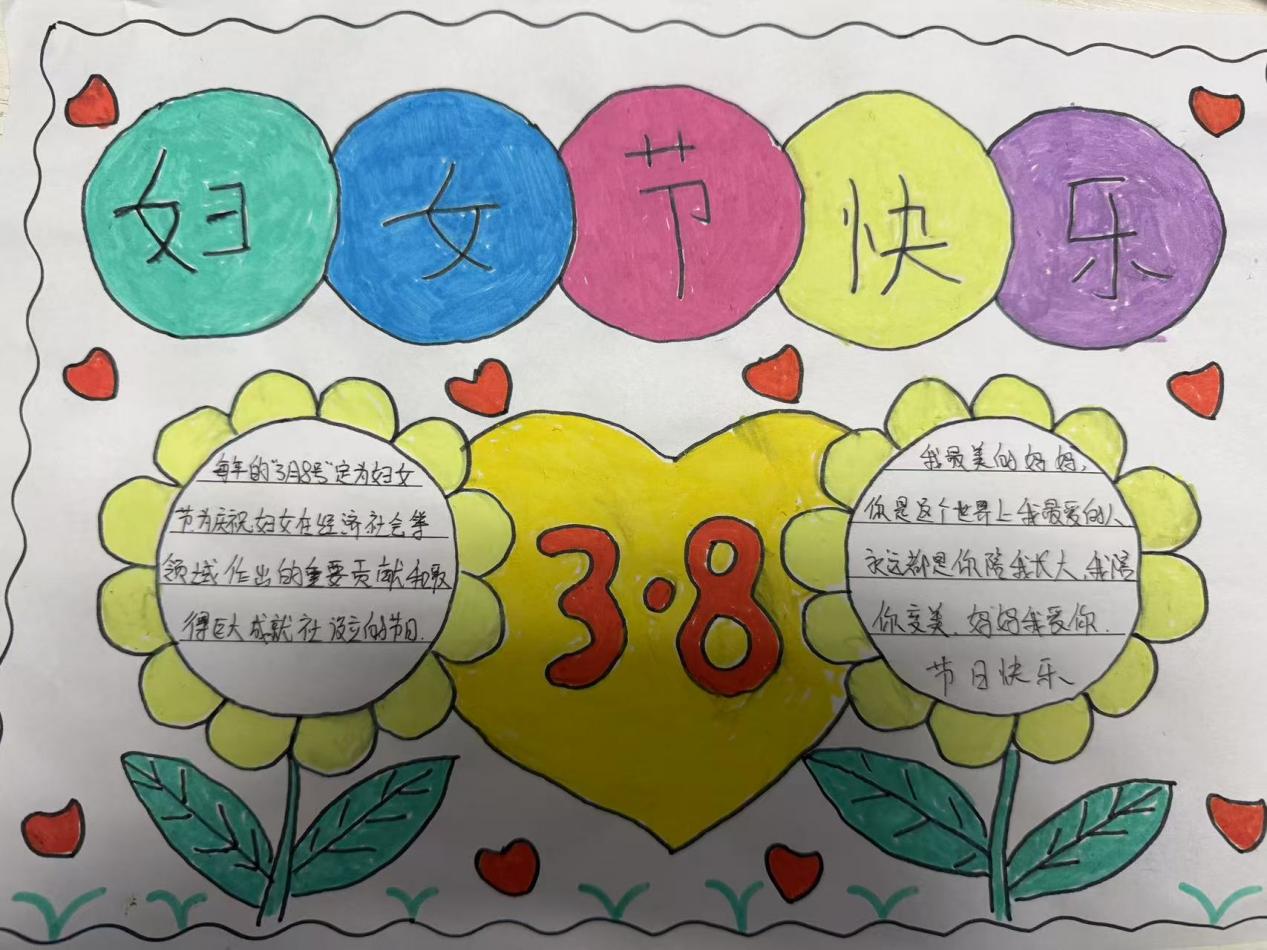 妇女节快乐
每年的"3月8号"定为妇女
节为庆祝妇女在经济社会等
领域作出的重要贡献和取
得巨大成就社设立的节日.
3·8
我最美的妈妈,
你是这个世界上我最爱的人
永远都是你陪我长大,我陪
你变美.妈妈我爱你.
节日快乐